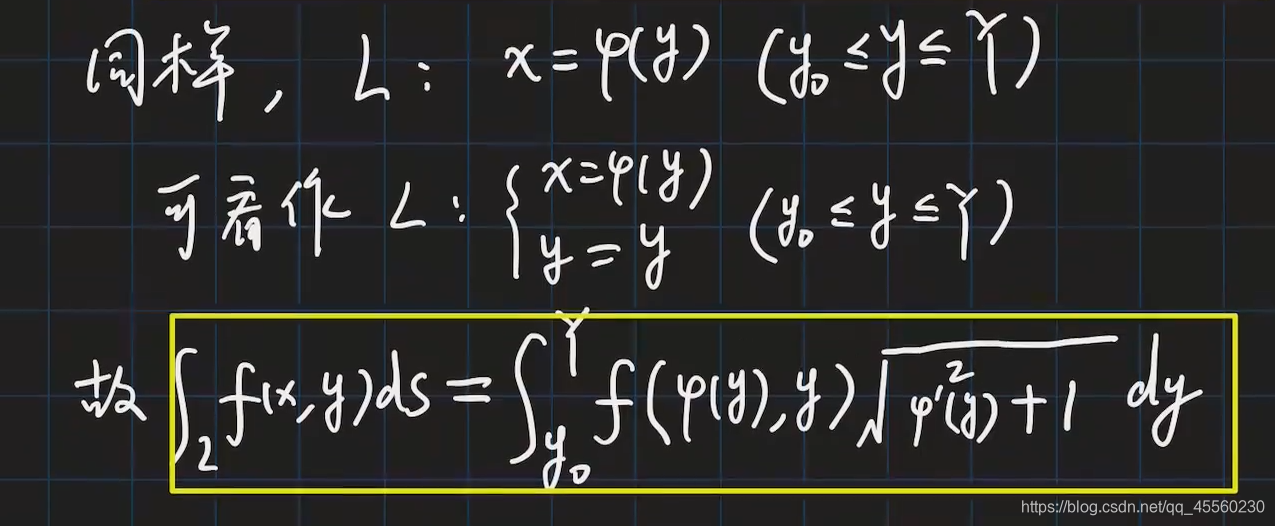 同样, L: x=φ(y) (y₀≤y≤Y)
可看作 L: { x=φ(y) y=y (y₀≤y≤Y)
故 ∫_L f(x,y)ds = ∫_{y₀}^{Y} f(φ(y),y)√(φ'²(y)+1) dy
https://blog.csdn.net/qq_45560230